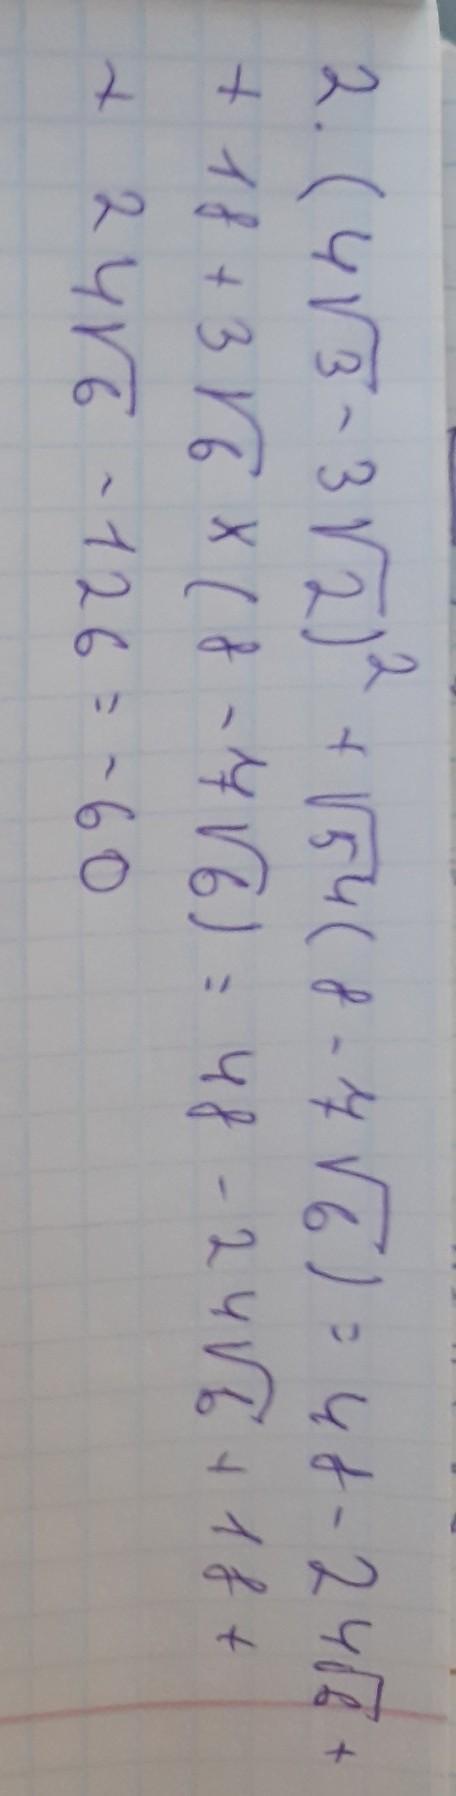 2. (4√3 - 3√2)² + √54(8 - 7√6) = 48 - 24√6 +
+ 18 + 3√6 × (8 - 7√6) = 48 - 24√6 + 18 +
+ 24√6 - 126 = -60